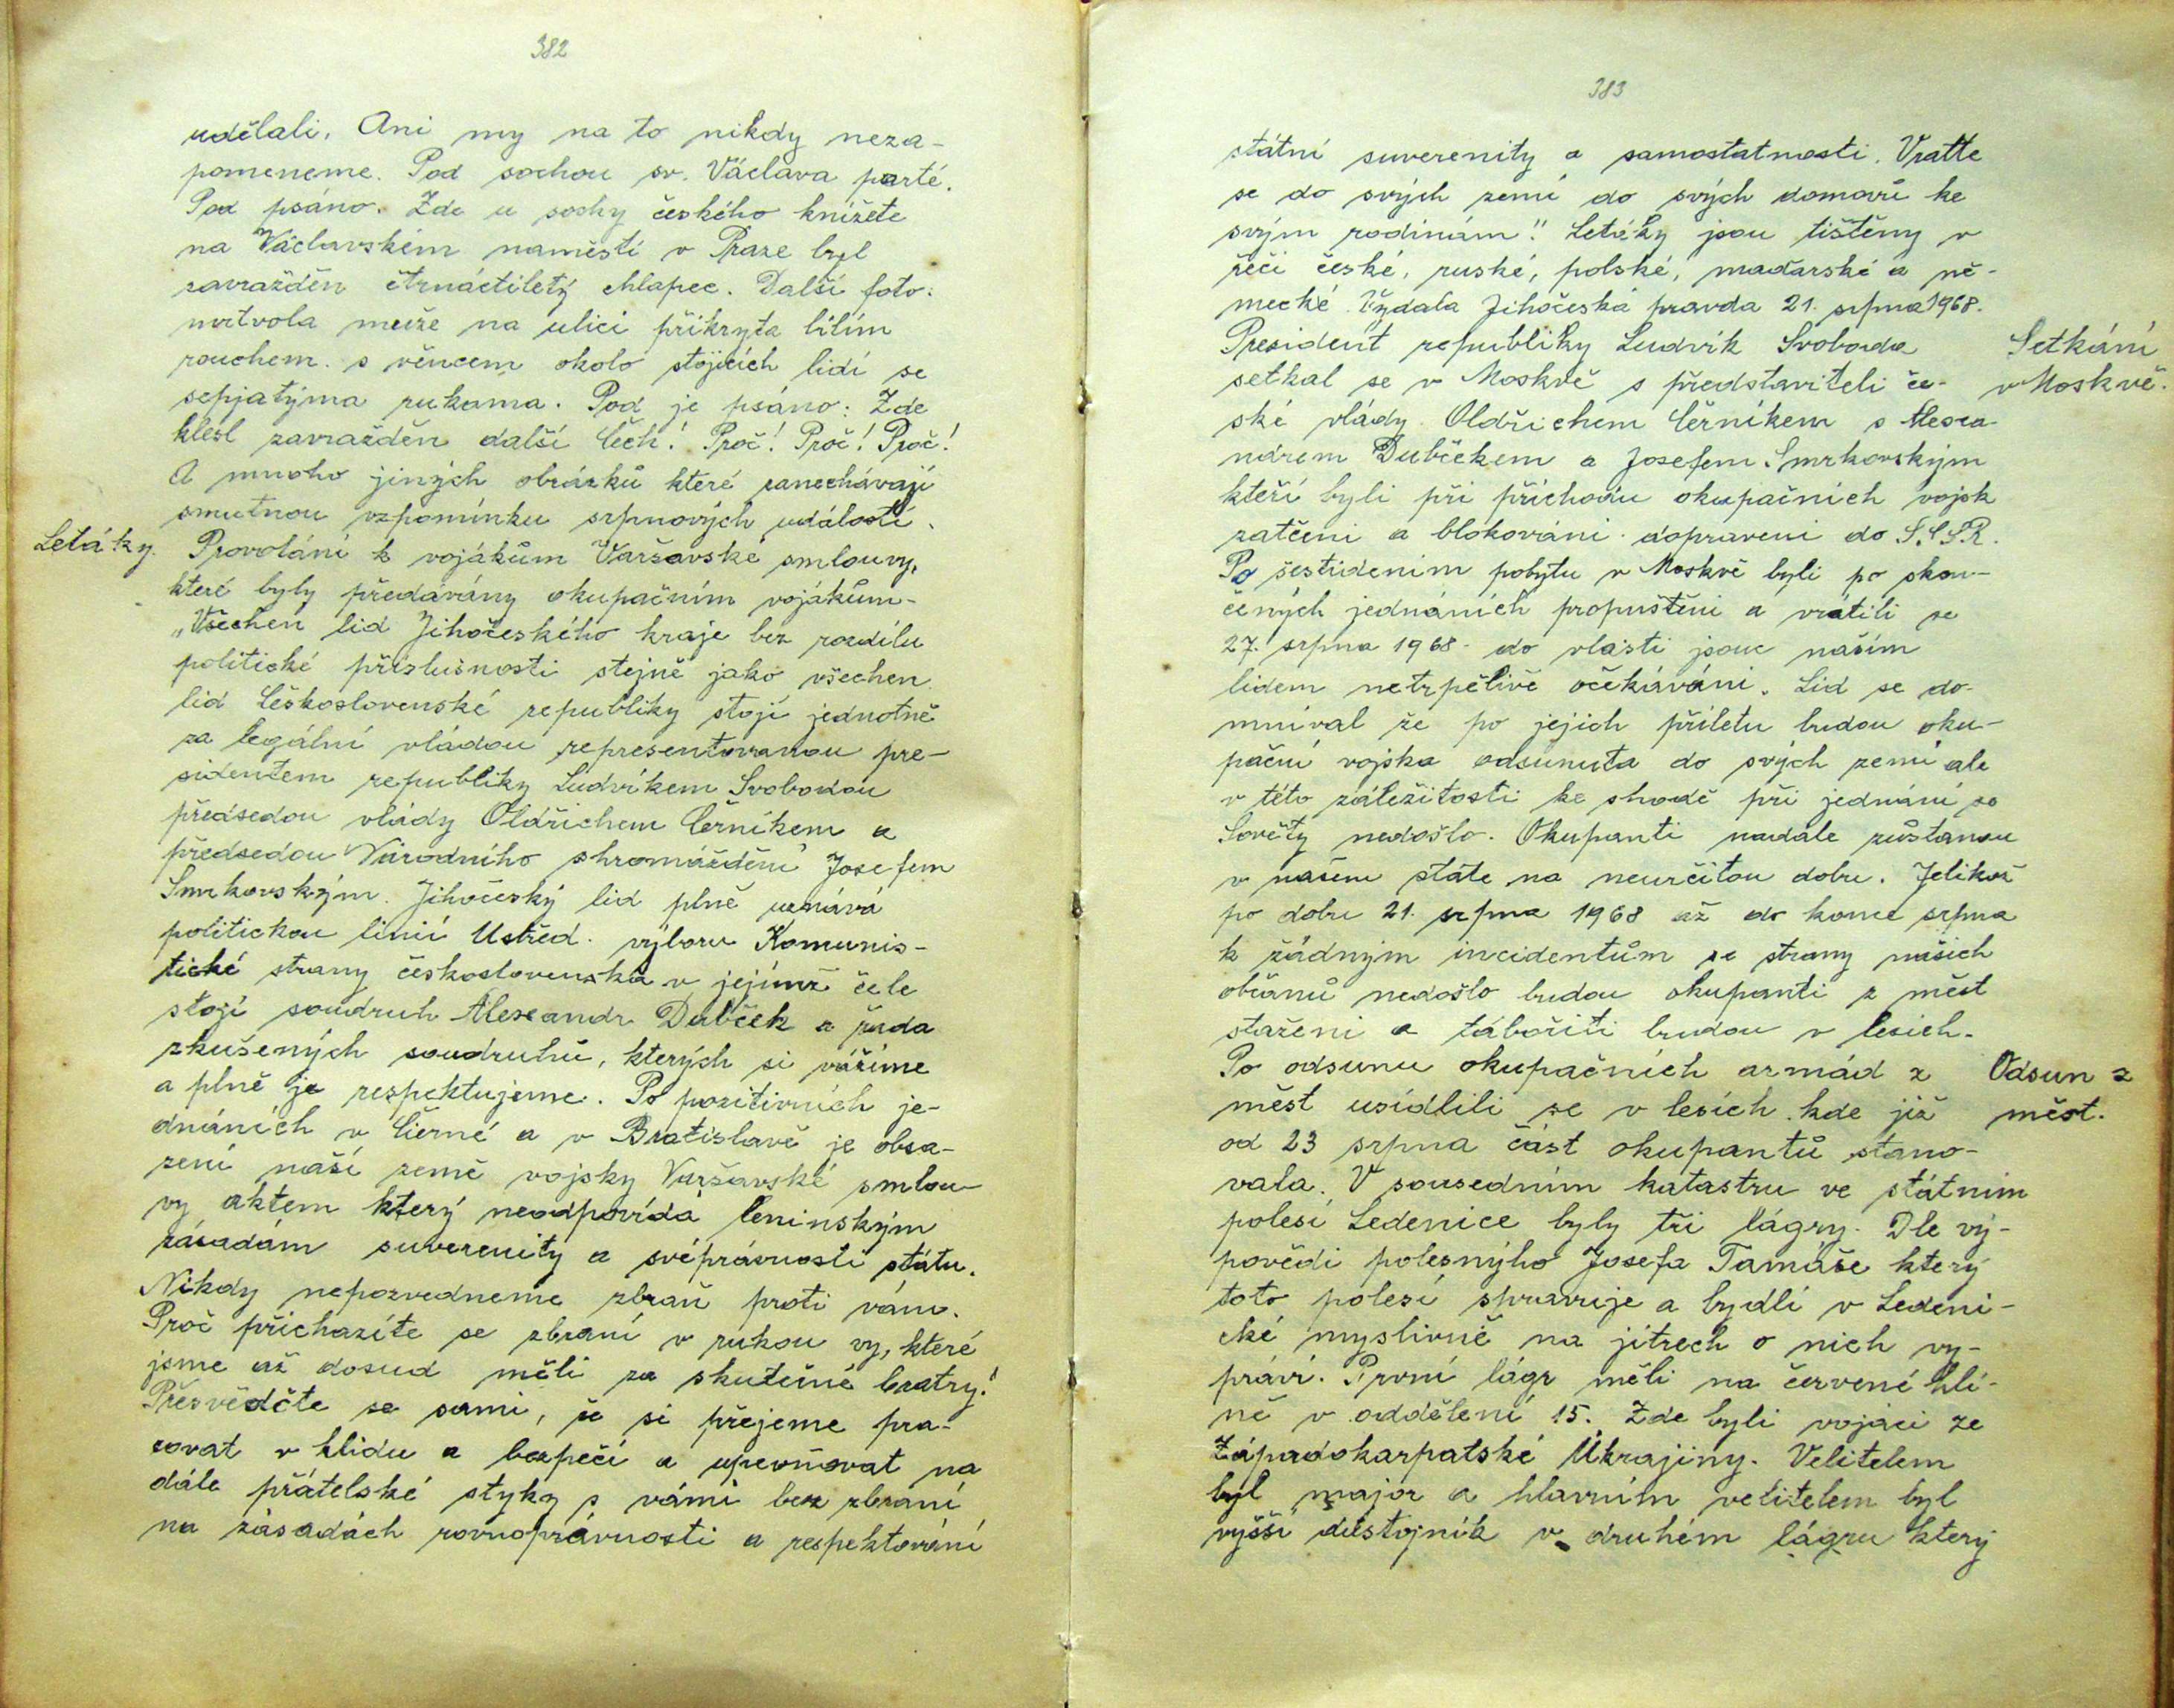 382
udělali. Ani my na to nikdy neza-
pomeneme. Pod sochou sv. Václava parté.
Pod psáno. Zde u sochy českého knížete
na Václavském naměstí v Praze byl
zavražděn čtrnáctiletý chlapec. Další foto:
mrtvola muže na ulici přikryta bílím
rouchem s věncem okolo stojících lidí se
sepjatýma rukama. Pod je psáno: Zde
klesl zavražděn další Čech! Proč! Proč! Proč!
A mnoho jiných obrázků které zanechávají
smutnou vzpomínku srpnových událostí.
Letáky. Provolání k vojákům Varšavské smlouvy,
které byly předávány okupačním vojákům-
„Všechen lid Jihočeského kraje bez rozdílu
politické příslušnosti stejně jako všechen
lid Československé republiky stojí jednotně
za legální vládou representovanou pre-
sidentem republiky Ludvíkem Svobodou
předsedou vlády Oldřichem Černíkem a
předsedou Národního shromáždění Josefem
Smrkovským. Jihočeský lid plně uznává
politickou linii Ústřed. výboru Komunis-
tické strany československa v jejímž čele
stojí soudruh Alexandr Dubček a řada
zkušených soudruhů, kterých si vážíme
a plně je respektujeme. Po pozitivních je-
dnáních v Čierné a v Bratislavě je obsa-
zení naší země vojsky Varšavské smlou-
vy aktem který neodpovídá leninským
zásadám suverenity a svéprávnosti státu.
Nikdy nepozvedneme zbraň proti vám.
Proč přicházíte se zbraní v rukou vy, které
jsme až dosud měli za skutečné bratry!
Přesvědčte se sami, že si přejeme pra-
covat v klidu a bezpečí a upevňovat na
dále přátelské styky s vámi bez zbraní
na zásadách rovnoprávnosti a respektování
383
státní suverenity a samostatnosti. Vraťte
se do svých zemí do svých domovů ke
svým rodinám!" Letáky jsou tištěny v
řeči české, ruské, polské, maďarské a ně-
mecké. Vydala Jihočeská pravda 21. srpna 1968.
President republiky Ludvík Svoboda Setkání
setkal se v Moskvě s představiteli če- v Moskvě.
ské vlády Oldřichem Černíkem s Alexa-
nárem Dubčekem a Josefem Smrkovským
kteří byli při příchodu okupačních vojsk
zatčeni a blokováni dopraveni do S.S.S.R.
Po šestidením pobytu v Moskvě byli po skon-
čených jednáních propuštěni a vrátili se
27. srpna 1968 do vlasti jsouc našim
lidem netrpělivě očekáváni. Lid se do-
mníval že po jejich příletu budou oku-
pační vojska odsunuta do svých zemí ale
v této záležitosti ke shodě při jednání se
Sověty nedošlo. Okupanti nadále zůstanou
v našem státe na neurčitou dobu. Jelikož
po dobu 21. srpna 1968 až do konce srpna
k žádným incidentům se strany našich
občanů nedošlo budou okupanti z měst
staženi a tábořiti budou v lesích.
Po odsunu okupačních armád z Odsun z
měst usídlili se v lesích kde již měst.
od 23 srpna část okupantů stano-
vala. V sousedním katastru ve státním
polesí Ledenice byly tři lágry. Dle vý-
povědi polesnýho Josefa Tamáše který
toto polesí spravuje a bydlí v Ledeni-
cké myslivně na jitrech o nich vy-
práví. První lágr měli na červené hlí-
ně v oddělení 15. Zde byli vojáci ze
Západokarpatské Ukrajiny. Velitelem
byl major a hlavním velitelem byl
vyšší důstojník v druhém lágru který